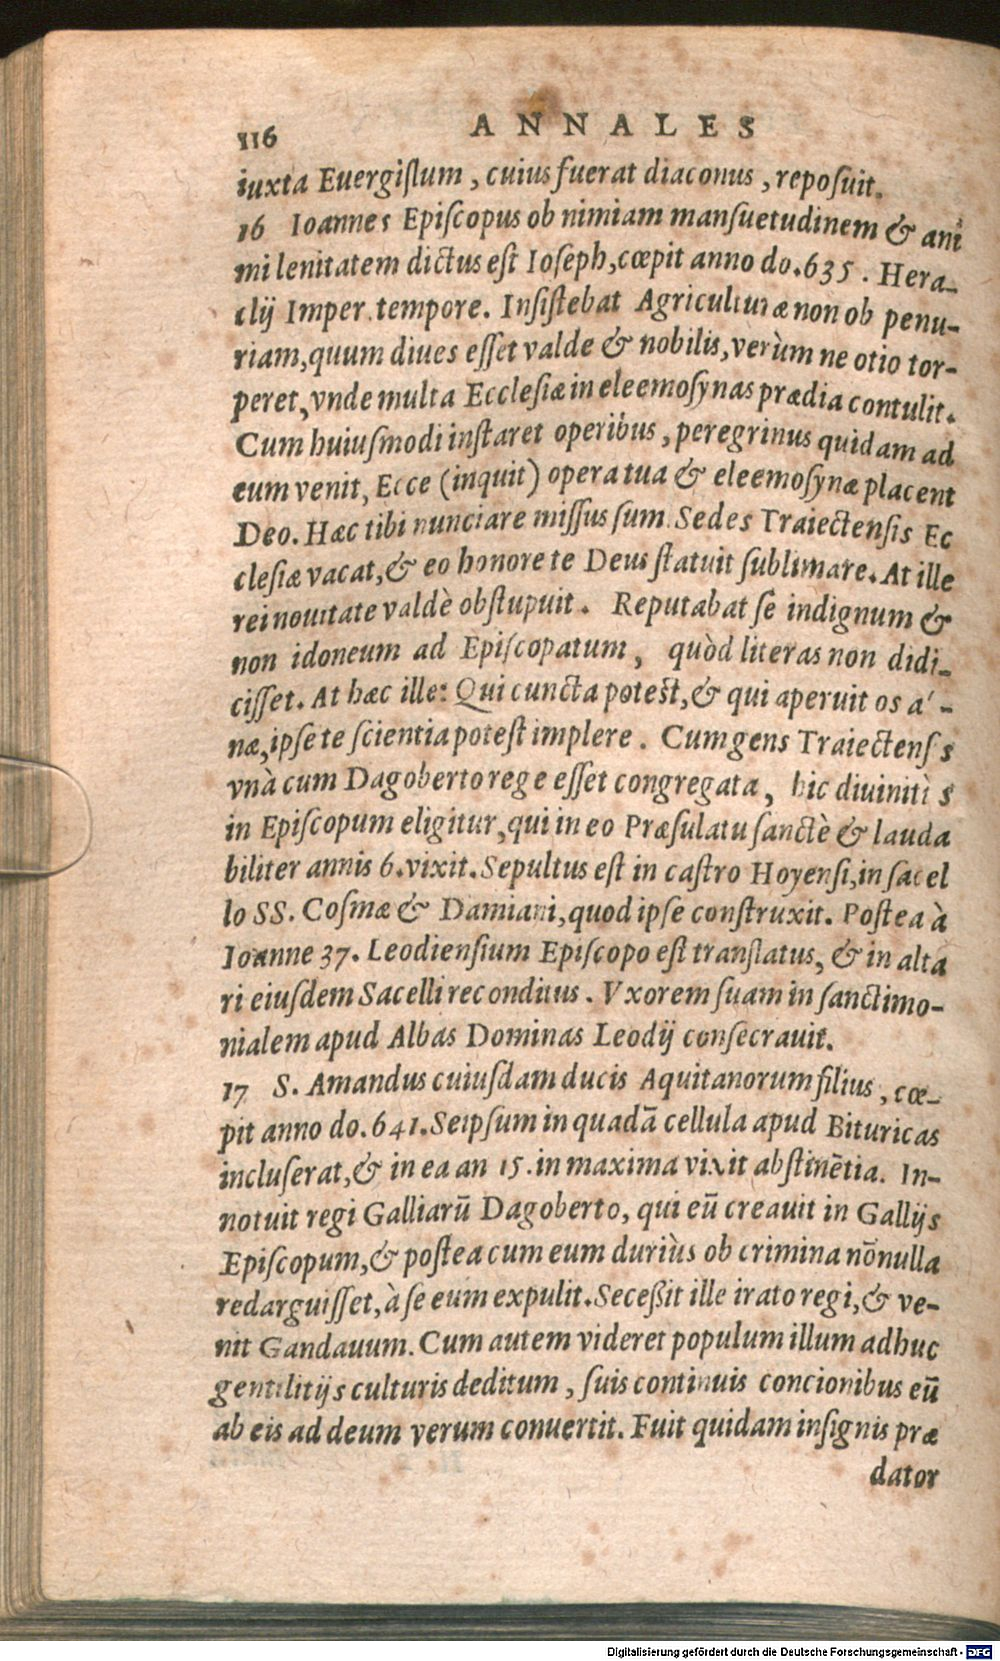 116 ANNALES
iuxta Euergiſlum, cuius fuerat diaconus, repoſuit.
16 Ioannes Epiſcopus ob nimiam manſuetudinem & ani
mi lenitatem dictus eſt Ioſeph, cœpit anno do. 635. Hera-
clij Imper. tempore. Inſiſtebat Agriculturæ non ob penu-
riam, quum diues eſſet valde & nobilis, verùm ne otio tor-
peret, vnde multa Eccleſiæ in eleemoſynas prædia contulit.
Cum huiuſmodi inſtaret operibus, peregrinus quidam ad
eum venit, Ecce (inquit) opera tua & eleemoſynæ placent
Deo. Hæc tibi nunciare miſſus ſum. Sedes Traiectenſis Ec
cleſiæ vacat, & eo honore te Deus ſtatuit ſublimare. At ille
rei nouitate valdè obſtupuit. Reputabat ſe indignum &
non idoneum ad Epiſcopatum, quòd literas non didi-
ciſſet. At hæc ille: Qui cuncta poteſt, & qui aperuit os aſi-
næ, ipſe te ſcientia poteſt implere. Cum gens Traiectenſis
vnà cum Dagoberto rege eſſet congregata, hic diuinitùs
in Epiſcopum eligitur, qui in eo Præſulatu ſanctè & lauda
biliter annis 6. vixit. Sepultus eſt in caſtro Hoyenſi, in ſacel
lo SS. Coſmæ & Damiani, quod ipſe conſtruxit. Poſtea à
Ioanne 37. Leodienſium Epiſcopo eſt tranſlatus, & in alta
ri eiuſdem Sacelli reconditus. Vxorem ſuam in ſanctimo-
nialem apud Albas Dominas Leodij conſecrauit.
17 S. Amandus cuiuſdam ducis Aquitanorum filius, cœ-
pit anno do. 641. Seipſum in quadā cellula apud Bituricas
incluſerat, & in ea an 15. in maxima vixit abſtinētia. In-
notuit regi Galliarū Dagoberto, qui eū creauit in Gallijs
Epiſcopum, & poſtea cum eum duriùs ob crimina nōnulla
redarguiſſet, à ſe eum expulit. Seceßit ille irato regi, & ve-
nit Gandauum. Cum autem videret populum illum adhuc
gentilitijs culturis deditum, ſuis continuis concionibus eū
ab eis ad deum verum conuertit. Fuit quidam inſignis præ
dator
Digitalisierung gefördert durch die Deutsche Forschungsgemeinschaft - DFG